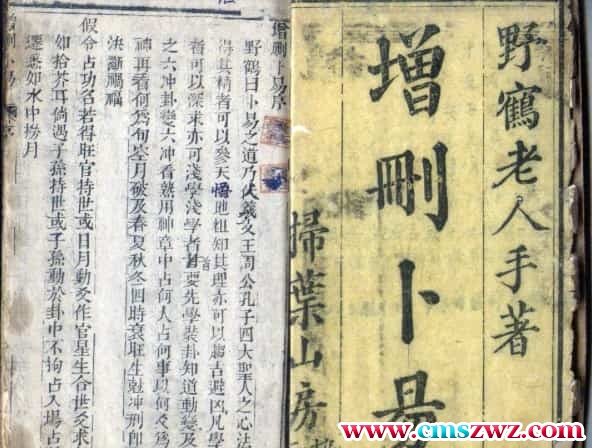 野鶴老人手著
增刪卜易
掃葉山房
增刪卜易序
野鶴曰卜易之道乃伏羲文王周公孔子四大聖人之心法
得其精者可以參天悟地粗知其理亦可以趨吉避凶凡學
者可以深求亦可淺學淺學者首要先學裝卦知道動變及
之六冲卦變六冲看熟用神章中占何人占何事以何爻為
神再看何為旬空月破及春夏秋冬四時衰旺生尅冲刑即
決斷禍福
假令占功名若得旺官持世或日月動爻作官星生合世爻求
如拾芥耳倘遇子孫持世或子孫動於卦中不拘占入場占
遷悉如水中撈月
增刪卜易
www.cmszwz.com